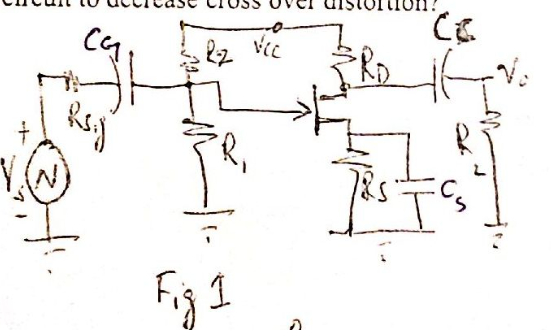 circuit to decrease cross over distortion?
CG R2 VCC RD CC Vo
Rsig R1 RS CS RL
Vs N
Fig 1